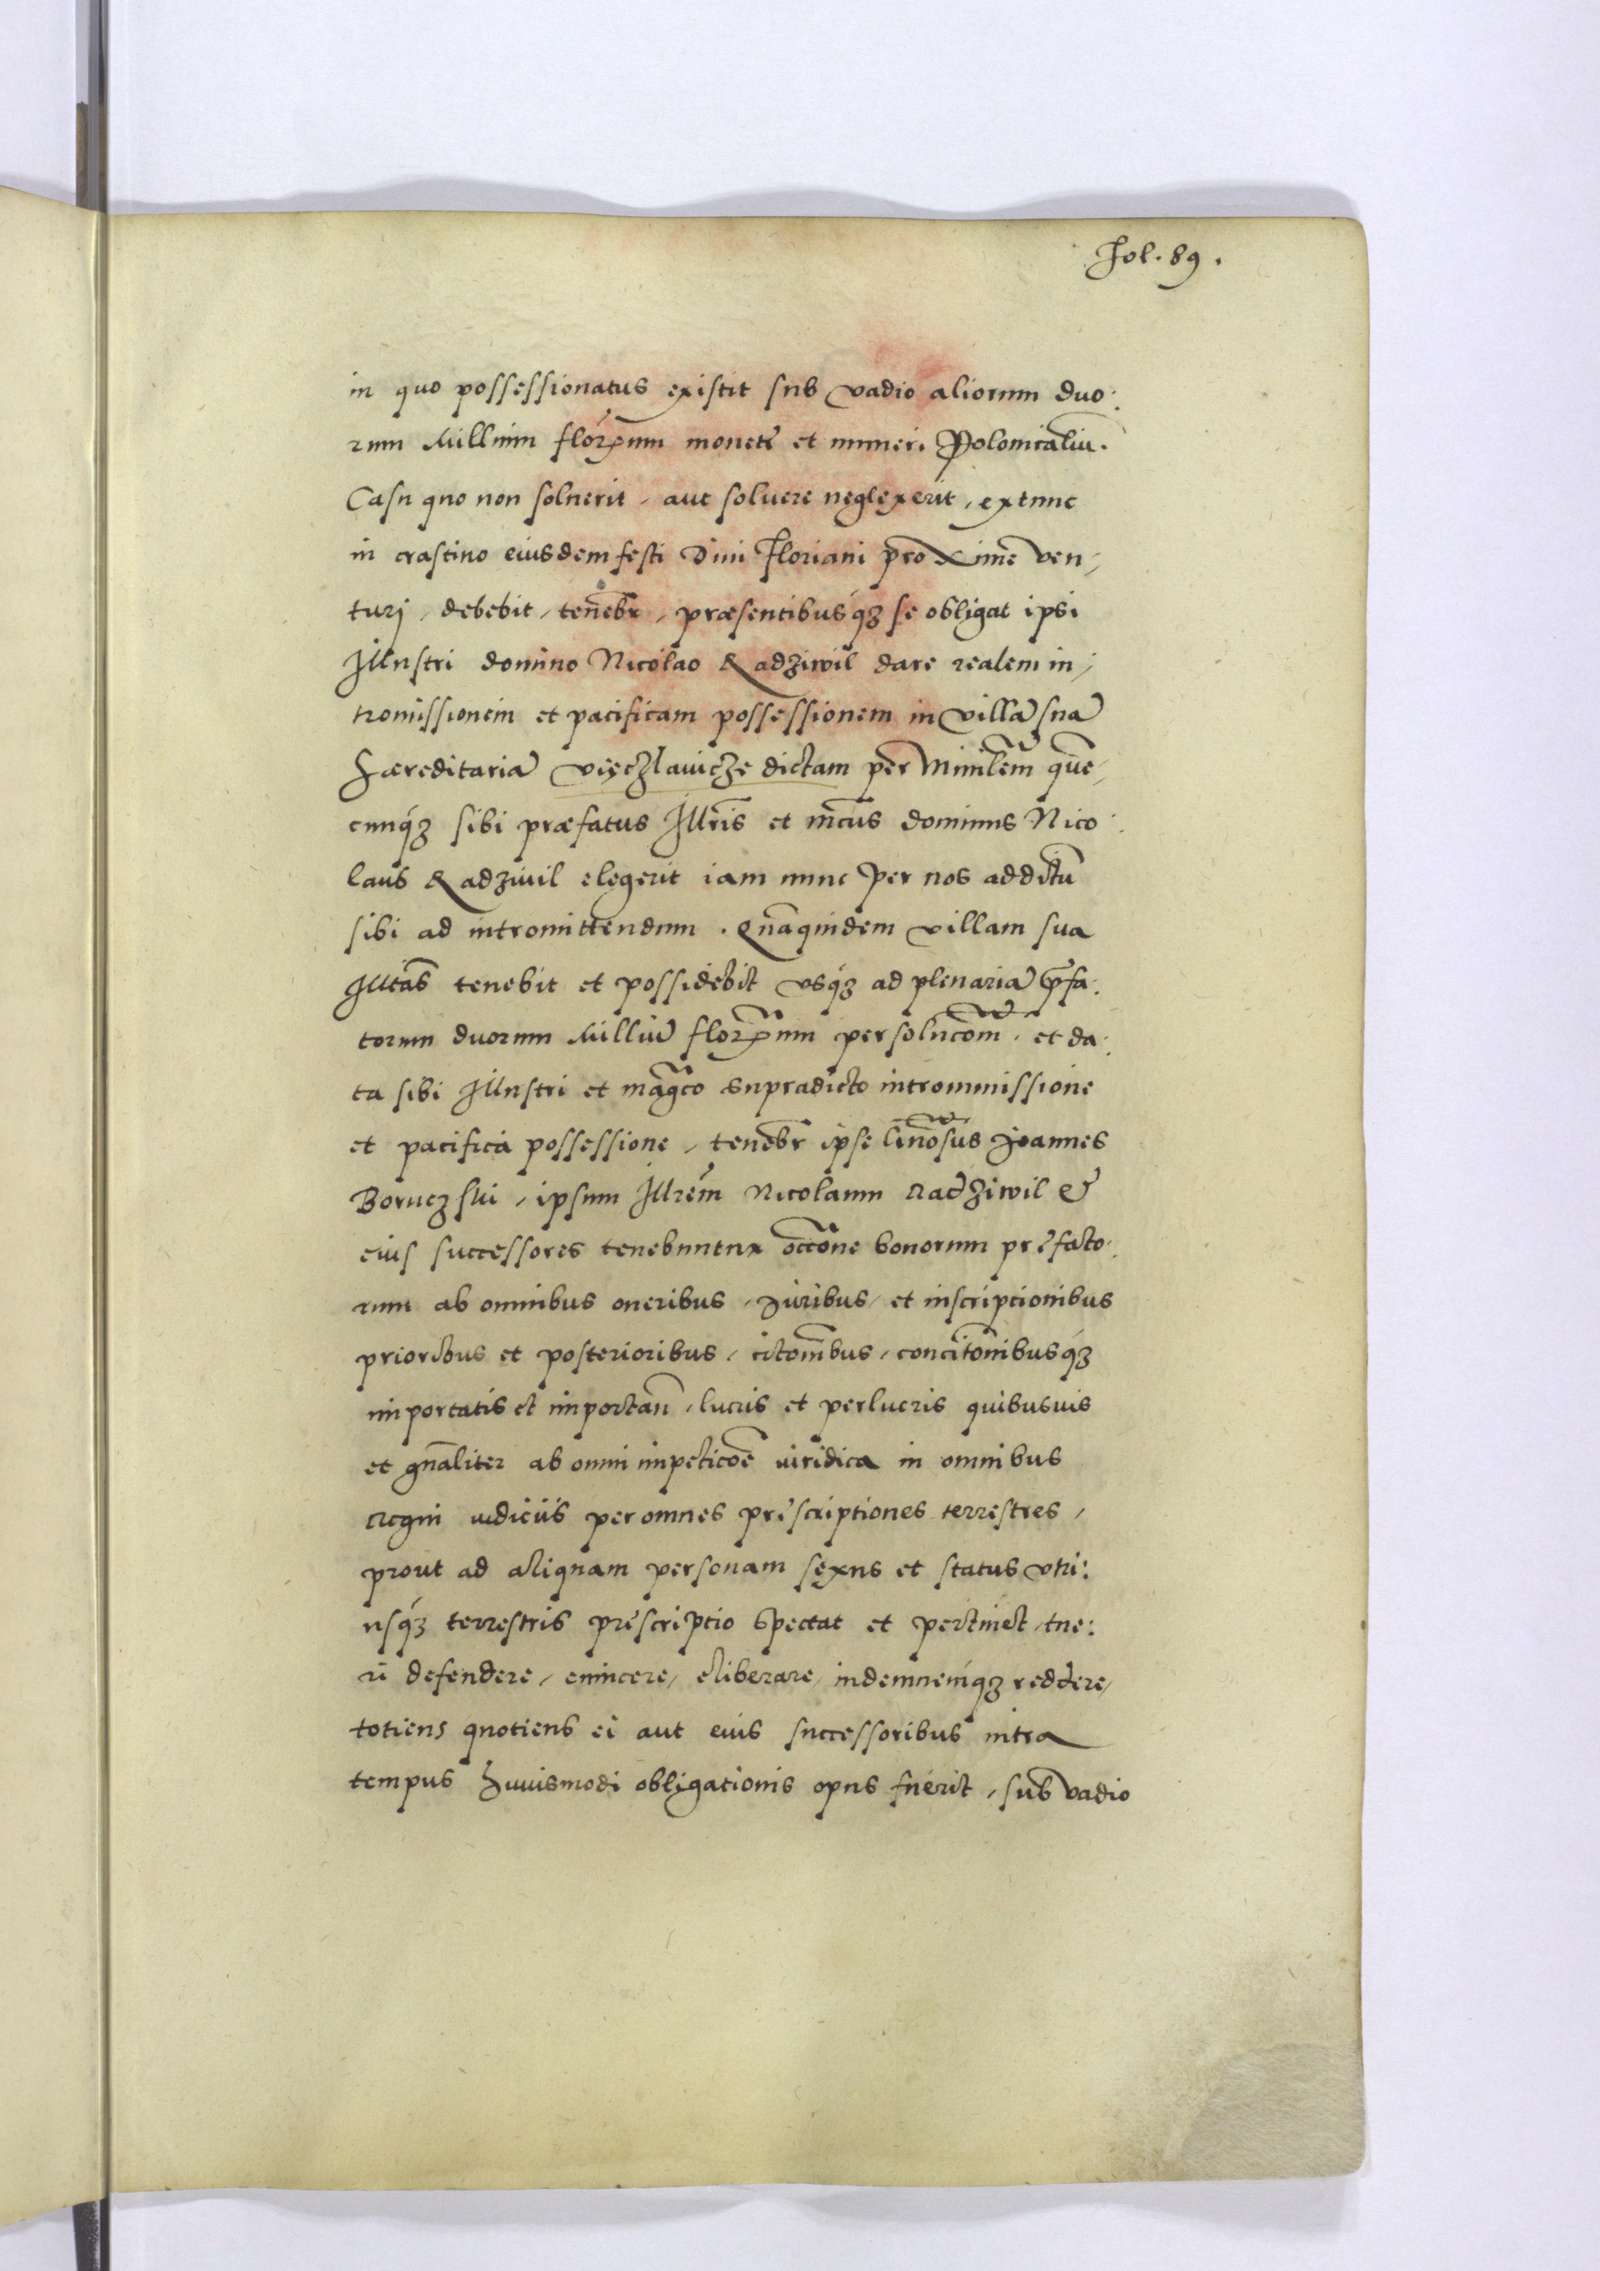 Fol. 89.
in quo possessionatus existit sub vadio aliorum duo:
rum Millium flor̃enum monetę et numeri Polonicaliũ.
Casu quo non soluerit, aut soluere neglexerit, extunc
in crastino eiusdem festi Diui Floriani proximẽ ven,
turj, debebit, tenebr̃, præsentibusq́ȝ se obligat ipsi
Illustri domino Nicolao Radziwil dare realem in,
tromissionem et pacificam possessionem in villã suã
hæreditariã Vięczlauicze dictam per Minilem̃ quẽ,
cunq́ȝ sibi præfatus Illr̃is et mc̃us dominus Nico:
laus Radziuil elegerit iam nunc per nos additũ
sibi ad intromittendum. Quãquidem villam sua
Illtãs tenebit et possidebit vsq́ȝ ad plenariã p̃fa:
torum duorum Milliũ flor̃enum persolucõm̃, et da:
ta sibi Illustri et mag̃co supradicto intrommissione
et pacifica possessione, tenebr̃ ipse Gñosus Joannes
Boruczski, ipsum Illrẽm Nicolaum Radziwil et
eius successores tenebuntur occõne bonorum pręfacto:
rum ab omnibus oneribus, iuribus, et inscriptionibus
prioribus et posterioribus, citom̃bus, concitom̃ibusq́ȝ
importatis et importañ, lucris et perlucris quibusuis
et gñaliter ab omni impeticõe iuridica in omnibus
Regni iudiciis per omnes pręscriptiones terrestres,
prout ad aliquam personam sexus et status vtri:
usq́ȝ terrestris pręscriptio spectat et pertinet, tue:
ri defendere, euincere, eliberare, indemnemq́ȝ reddere,
totiens quotiens ei aut eius successoribus intra
tempus huiusmodi obligationis opus fuerit, sub vadio